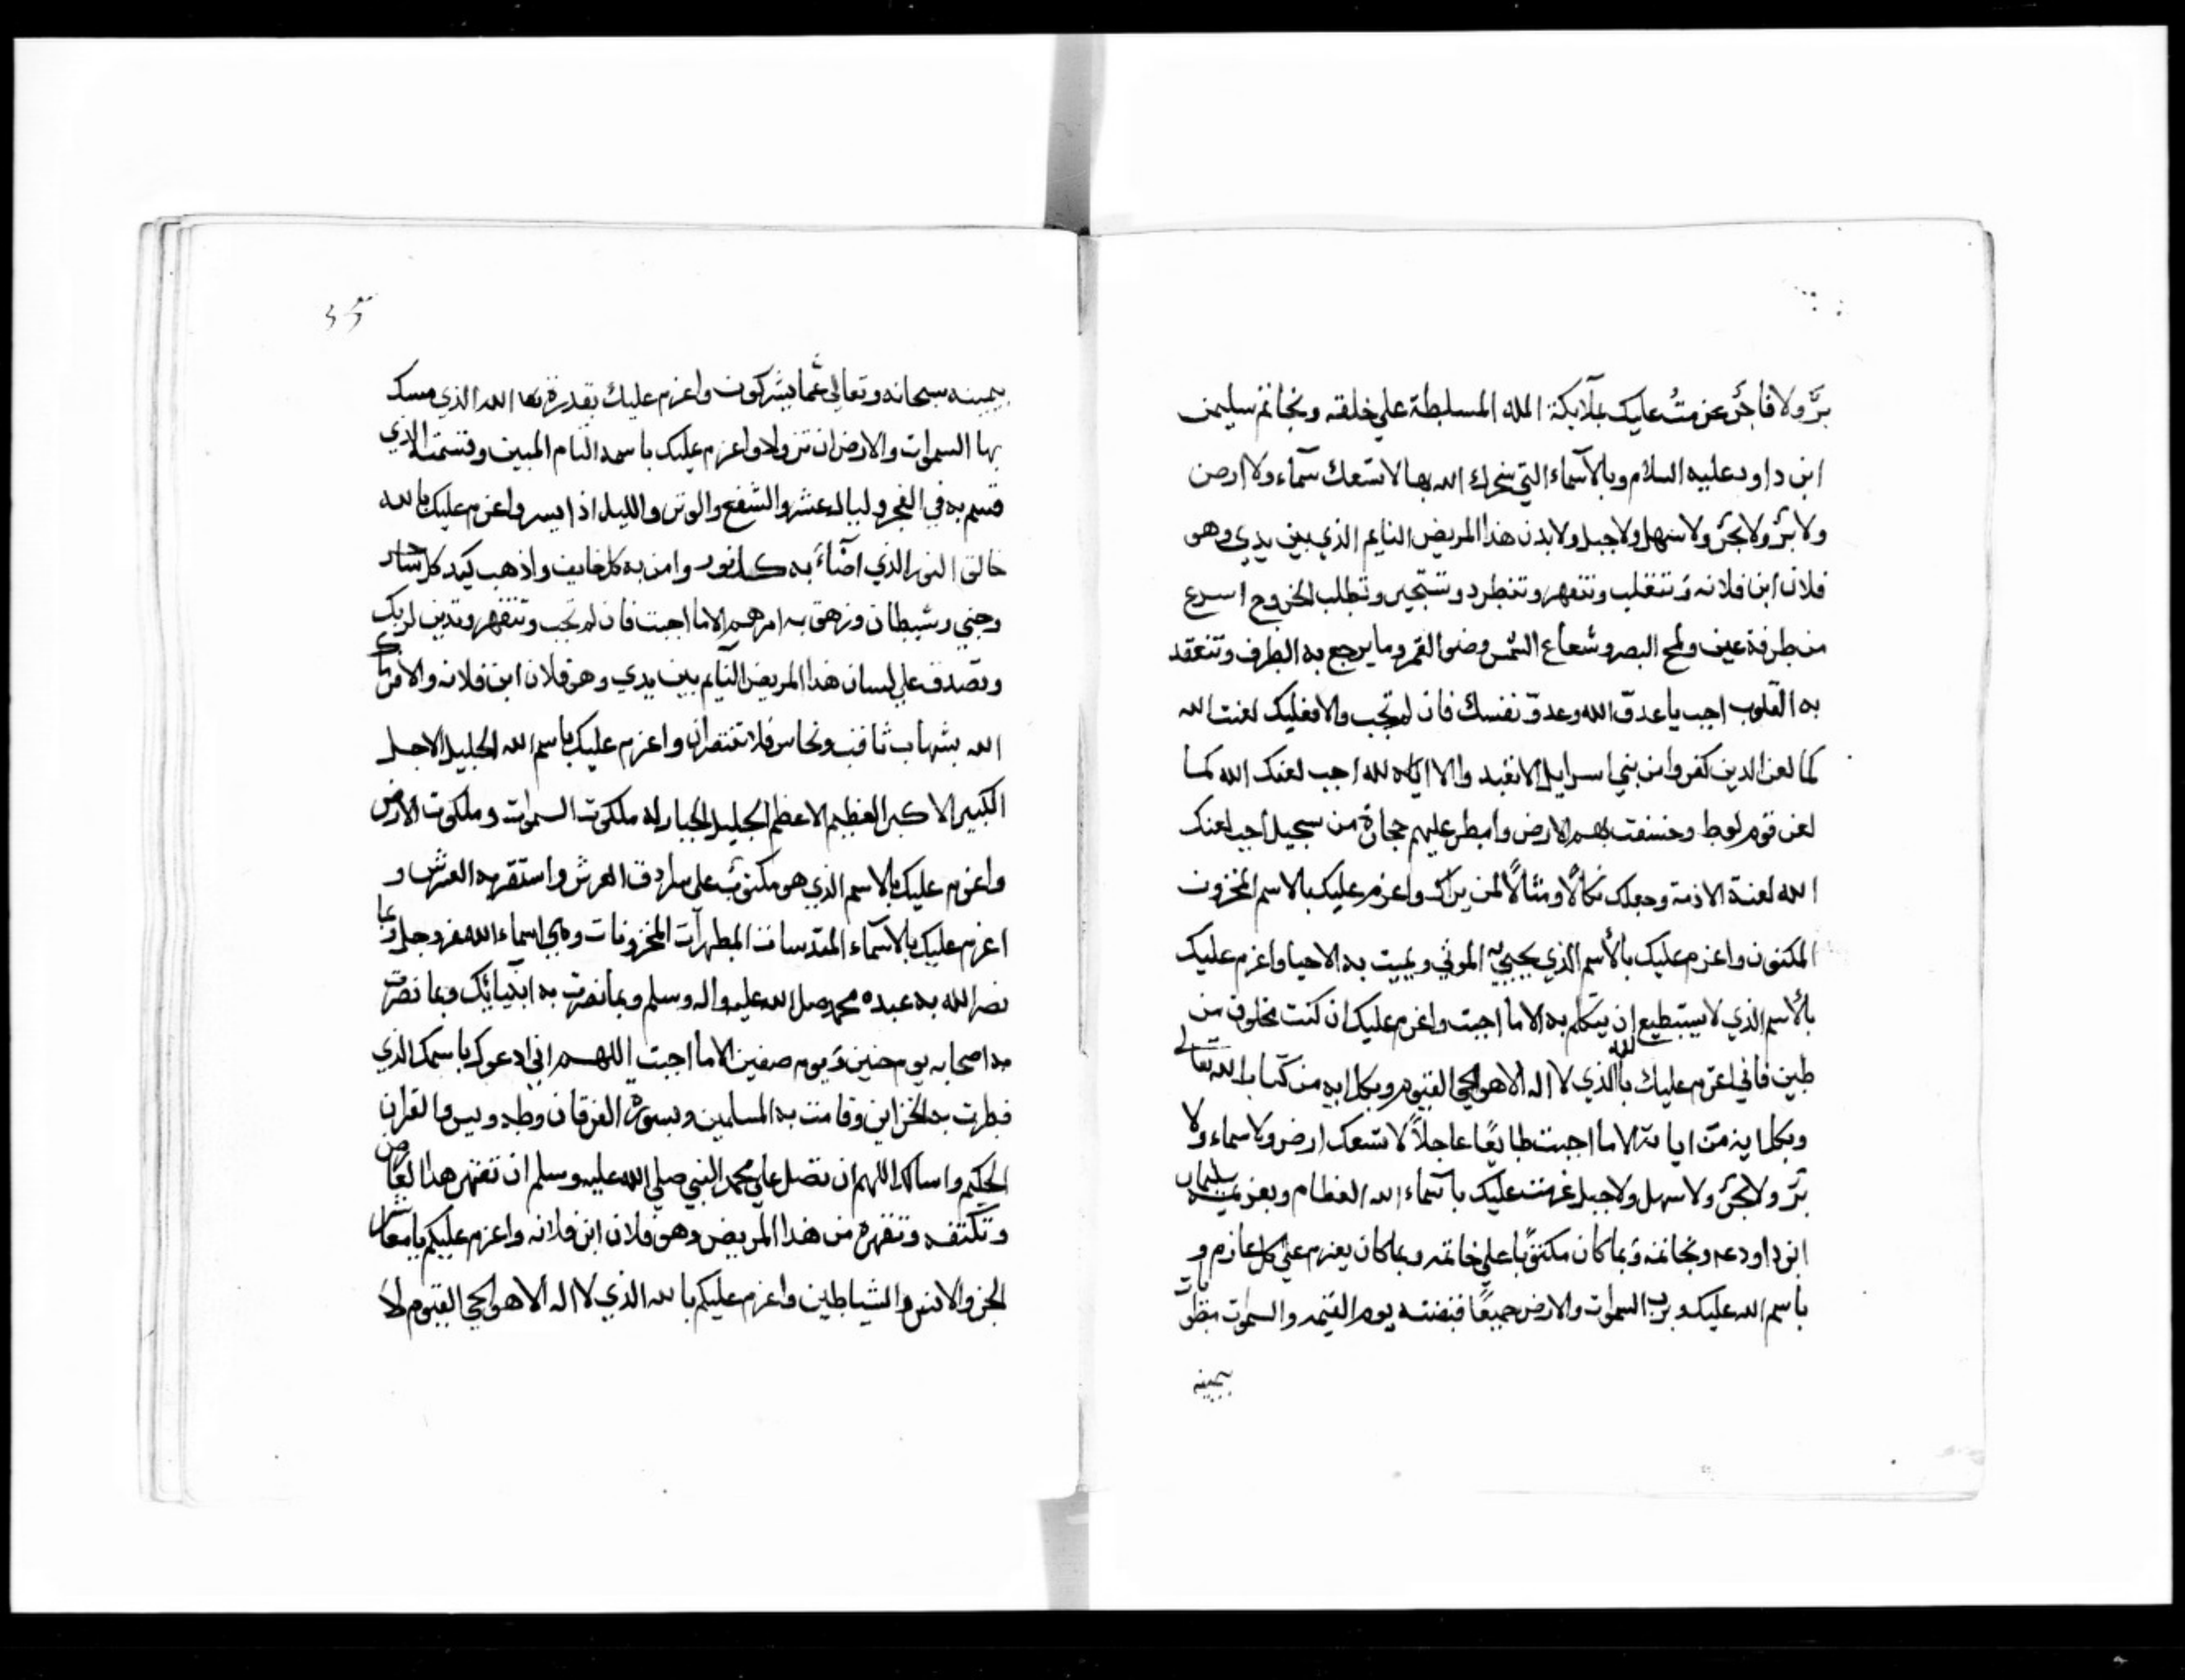 برّ ولا فاجرٌ عزمتُ عليك بملآيكة الله المسلطة على خلقه وبخاتم سليمن
ابن داود عليه السلام وبالاسماء التي سخرك الله بها لا تسعك سماء ولا ارض
ولا برٌ ولا بحرٌ ولا سهل ولا جبل ولا بدن هذا المريض النايم الذي بين يدي وهو
فلان ابن فلانه وتنغلب وتنقهر وتنطرد وتستجير وتطلب الخروج اسرع
من طرفة عين ولمح البصر وشعاع الشمس وضو القمر وما يرجع به الطرف وتنعقد
به القلوب اجب يا عدو الله وعدوّ نفسك فان لم تجب والا فعليك لعنت الله
كما لعن الدين كفروا من بني اسرايل الا نعبد والا اياه لله اجب لعنك الله كما
لعن قوم لوط وخسفت بهم الارض وامطر عليهم حجارة من سجيل اجب لعنك
الله لعنة الازمة وجعلك نكالًا ومثالًا لمن يراك واعزم عليك بالاسم المخزون
المكنون واعزم عليك بالأسم الذي يحيي به الموتي ويميت به الاحيا واعزم عليك
بالأسم الذي لا يستطيع ان يتكلم به الا ما اجبت واعزم عليك ان كنت مخلوق من
طين فاني اعزم عليك بالله الذي لا اله الا هو الحي القيوم وبكل ايه من كتاب الله تعالى
وبكل اية من اياته الا ما اجبت طايعًا عاجلاً لا تسعك ارض ولا سماء ولا
برّ ولا بحرٌ ولا سهل ولا جبل عزمت عليك باسماء الله العظام وبعزيمة سليمان
ابن داود عه وبخاتمه وبما كان مكتوبًا على خاتمه وبما كان يعزم على كل عازم و
باسم الله عليك وبرب السموات والارض جميعًا قبضته يوم القيمه والسموات مطويات
بيمينه
بيمينه سبحانه وتعالى عما يشركون واعزم عليك بقدرة الله الذي مسك
بها السموات والارض ان تزولا واعزم عليك باسمه التام المبين وقسمته الذي
قسم به في الفجر وليال عشر والشفع والوتر والليل اذا يسر واعزم عليك بالله
خالق النور الذي اضاء به كل نور وامن به كل خايف واذهب كيد كل ساحر
وجني وشيطان وزهق به امرهم الا ما اجبت فان لم تجب وتنقهر وتدين لربك
وتصدق علي لسان هذا المريض النايم بين يدي وهو فلان ابن فلانه والا فرماك
الله بشهاب ثاقب ونحاس فلا تنتصران واعزم عليك باسم الله الجليل الاجل
الكبير الاكبر العظيم الاعظم الجليل الجبار له ملكوت السموات وملكوت الارض
واعزم عليك بالاسم الذي هو مكتوب على سرادق العرش واستقر به العرش و
اعزم عليك بالاسماء المقدسات المطهرات المخزونات وهي اسماء الله عزوجل وبما
نصر الله به عبده محمد صلى الله عليه واله وسلم وبما نصرت به انبيائك وبما نصرت
به اصحابه يوم حنين ويوم صفين الا ما اجبت اللهم اني ادعوك باسمك الذي
فطرت به الخزاين وقامت به المسلمين وبسورة الفرقان وطه ويس والقران
الحكيم واسالك اللهم ان تصل على محمد النبي صلي الله عليه وسلم ان تقهر هذا العارض
وتكتفه وتنفره من هذا المريض وهو فلان ابن فلانه واعزم عليكم يا معاشر
الجن والانس والشياطين واعزم عليكم بالله الذي لا اله الا هو الحي القيوم لا